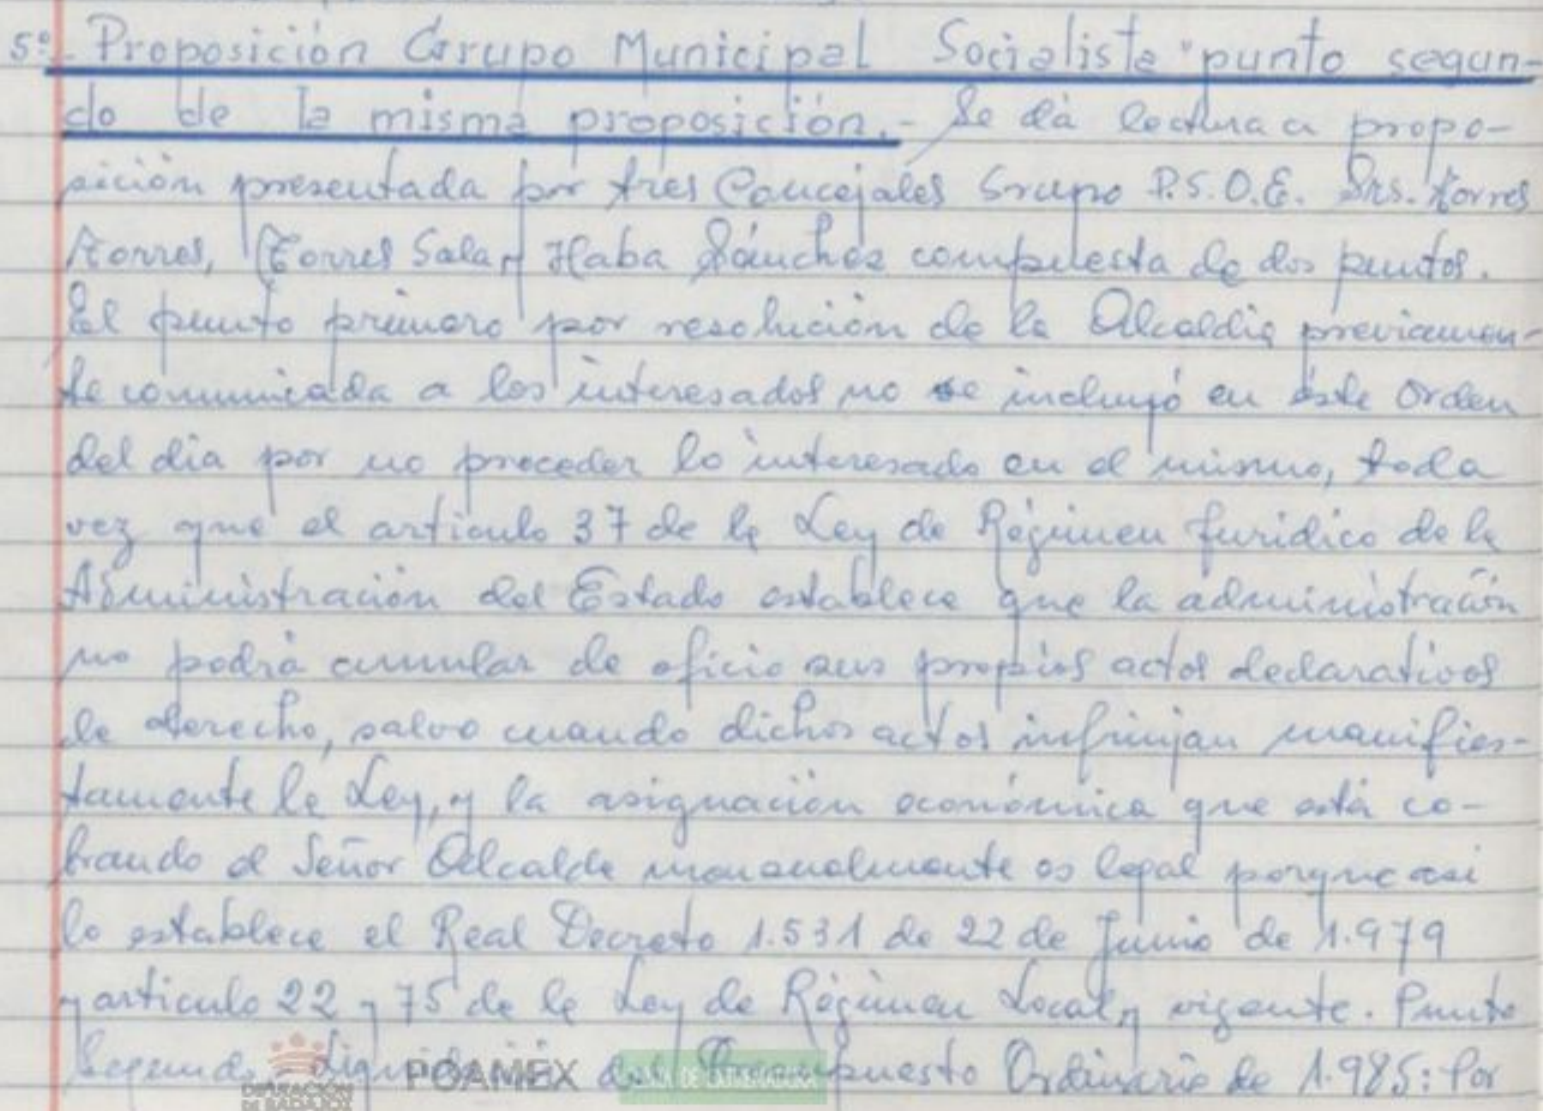 5º.- Proposición Grupo Municipal Socialista "punto segun-
do de la misma proposición.- Se dá lectura a propo-
sición presentada por tres Concejales Grupo P.S.O.E. Srs. Torres
Torres, Torres Sala y Haba Sánchez compuesta de dos puntos.
El punto primero por resolución de la Alcaldia previamen-
te comunicada a los interesados no se incluyó en éste Orden
del dia por no proceder lo interesado en el mismo, toda
vez que el articulo 37 de la Ley de Régimen Juridico de la
Administración del Estado establece que la administración
no podrá anular de oficio sus propios actos declarativos
de derecho, salvo cuando dichos actos infrinjan manifies-
tamente la Ley, y la asignación económica que está co-
brando el Señor Alcalde mensualmente es legal porque asi
lo establece el Real Decreto 1.531 de 22 de Junio de 1.979
y articulo 22 y 75 de la Ley de Régimen Local, vigente. Punto
Segundo Liquidación del Presupuesto Ordinario de 1.985: Por
DIPUTACIÓN DE BADAJOZ POAMEX JUNTA DE EXTREMADURA